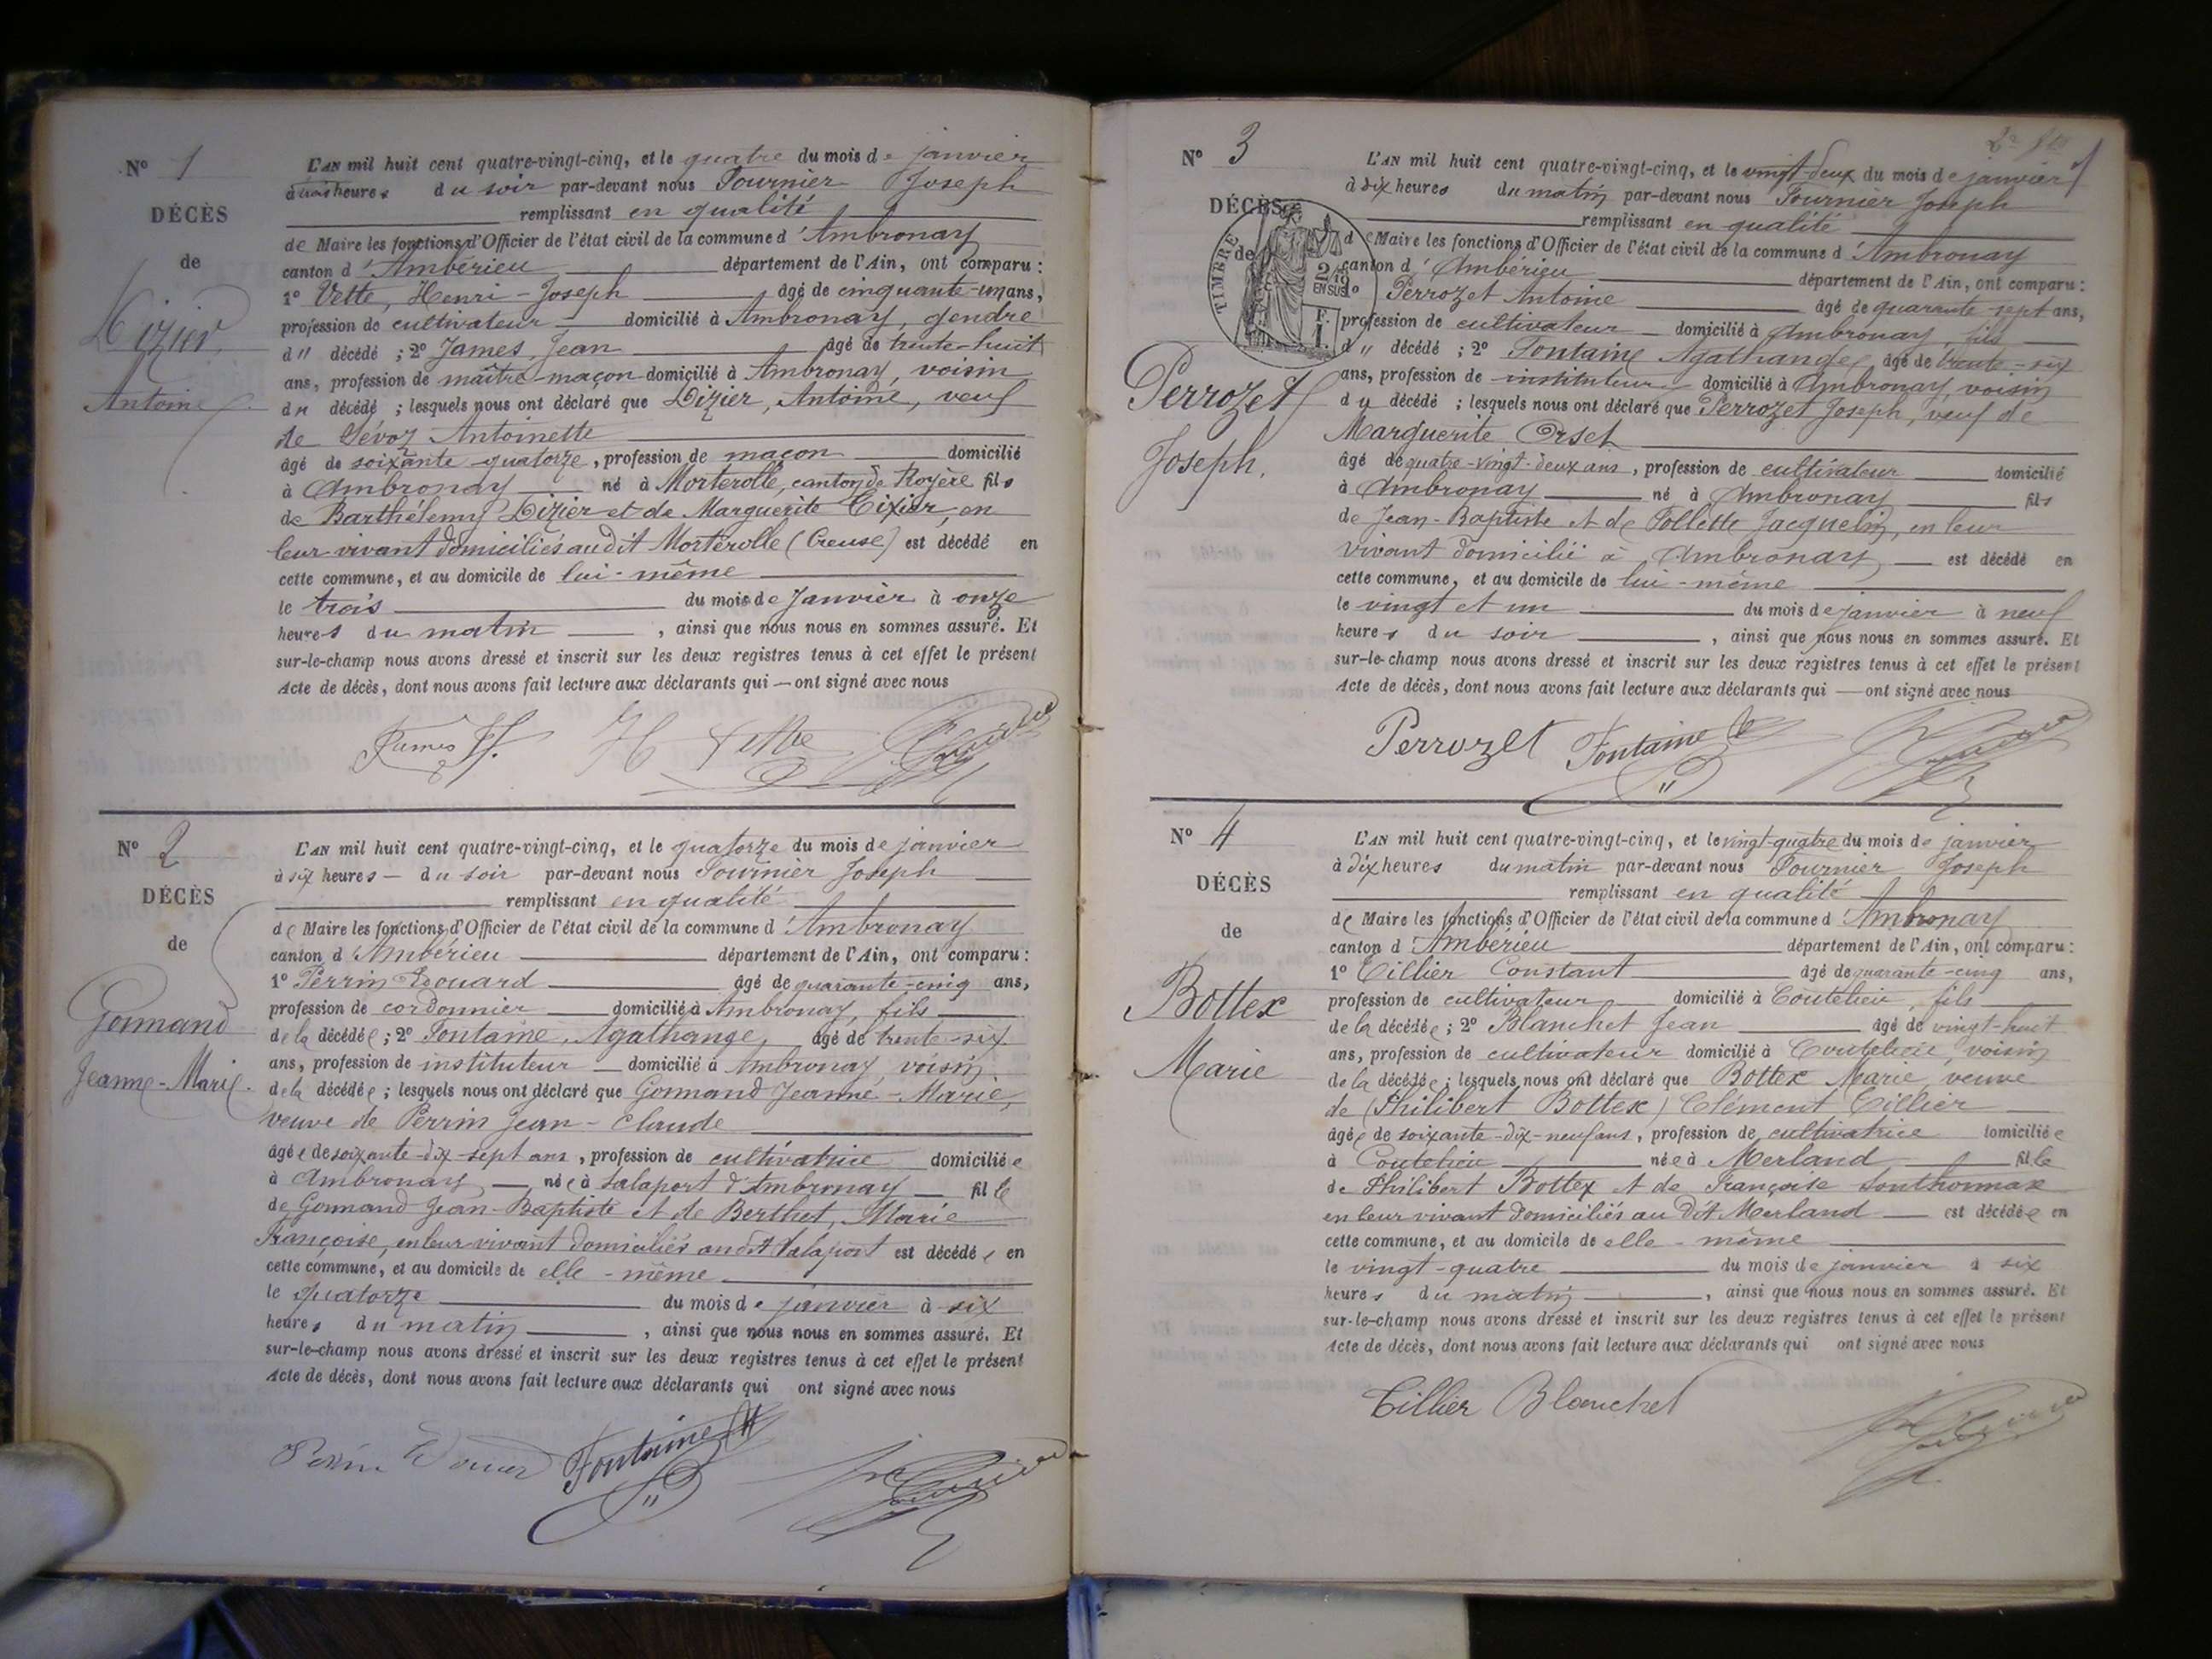 N° 1
DÉCÈS
de
Dizier,
Antoine
L'AN mil huit cent quatre-vingt-cinq, et le quatre du mois de janvier
à trois heures du soir par-devant nous Fournier Joseph
remplissant en qualité
de Maire les fonctions d'Officier de l'état civil de la commune d'Ambronay
canton d'Ambérieu département de l'Ain, ont comparu :
1° Vette, Henri-Joseph âgé de cinquante-un ans,
profession de cultivateur domicilié à Ambronay, gendre
du décédé ; 2° James, Jean âgé de trente-huit
ans, profession de maître-maçon domicilié à Ambronay, voisin
du décédé ; lesquels nous ont déclaré que Dizier, Antoine, veuf
de Sévoz Antoinette
âgé de soixante-quatorze, profession de maçon domicilié
à Ambronay né à Morterolle, canton de Royère fils
de Barthélemy Dizier et de Marguerite Tixier, en
leur vivant domiciliés audit Morterolle (Creuse) est décédé en
cette commune, et au domicile de lui-même
le trois du mois de Janvier à onze
heures du matin, ainsi que nous nous en sommes assuré. Et
sur-le-champ nous avons dressé et inscrit sur les deux registres tenus à cet effet le présent
Acte de décès, dont nous avons fait lecture aux déclarants qui — ont signé avec nous
James H Vette
N° 2
DÉCÈS
de
Gonnand
Jeanne-Marie.
L'AN mil huit cent quatre-vingt-cinq, et le quatorze du mois de janvier
à six heures — du soir par-devant nous Fournier Joseph
remplissant en qualité
de Maire les fonctions d'Officier de l'état civil de la commune d'Ambronay
canton d'Ambérieu département de l'Ain, ont comparu :
1° Perrin Edouard âgé de quarante-cinq ans,
profession de cordonnier domicilié à Ambronay, fils
de la décédée ; 2° Fontaine, Agathange, âgé de trente-six
ans, profession de instituteur domicilié à Ambronay, voisin
de la décédée ; lesquels nous ont déclaré que Gonnand Jeanne-Marie,
veuve de Perrin Jean-Claude
âgée de soixante-dix-sept ans, profession de cultivatrice domiciliée
à Ambronay née à Salaport d'Ambronay fille
de Gonnand Jean-Baptiste et de Berthet, Marie
Françoise, en leur vivant domiciliés audit Salaport est décédée en
cette commune, et au domicile de elle-même
le quatorze du mois de janvier à six
heures du matin, ainsi que nous nous en sommes assuré. Et
sur-le-champ nous avons dressé et inscrit sur les deux registres tenus à cet effet le présent
Acte de décès, dont nous avons fait lecture aux déclarants qui ont signé avec nous
Perrin Edouard Fontaine
N° 3
DÉCÈS
de
TIMBRE
2/10
EN SUS
Perrozet
Joseph.
L'AN mil huit cent quatre-vingt-cinq, et le vingt-deux du mois de janvier
à dix heures du matin par-devant nous Fournier Joseph
remplissant en qualité
de Maire les fonctions d'Officier de l'état civil de la commune d'Ambronay
canton d'Ambérieu département de l'Ain, ont comparu :
1° Perrozet Antoine âgé de quarante-sept ans,
profession de cultivateur domicilié à Ambronay, fils
du décédé ; 2° Fontaine Agathange, âgé de trente-six
ans, profession de instituteur domicilié à Ambronay, voisin
du décédé ; lesquels nous ont déclaré que Perrozet Joseph, veuf de
Marguerite Orset
âgé de quatre-vingt-deux ans, profession de cultivateur domicilié
à Ambronay né à Ambronay fils
de Jean-Baptiste et de Follette Jacquelin, en leur
vivant domicilié à Ambronay est décédé en
cette commune, et au domicile de lui-même
le vingt et un du mois de janvier à neuf
heures du soir, ainsi que nous nous en sommes assuré. Et
sur-le-champ nous avons dressé et inscrit sur les deux registres tenus à cet effet le présent
Acte de décès, dont nous avons fait lecture aux déclarants qui — ont signé avec nous
Perrozet Fontaine
N° 4
DÉCÈS
de
Bottex
Marie
L'AN mil huit cent quatre-vingt-cinq, et le vingt-quatre du mois de janvier
à dix heures du matin par-devant nous Fournier Joseph
remplissant en qualité
de Maire les fonctions d'Officier de l'état civil de la commune d'Ambronay
canton d'Ambérieu département de l'Ain, ont comparu :
1° Tillier Constant âgé de quarante-cinq ans,
profession de cultivateur domicilié à Coutelieu, fils
de la décédée ; 2° Blanchet Jean âgé de vingt-huit
ans, profession de cultivateur domicilié à Coutelieu, voisin
de la décédée ; lesquels nous ont déclaré que Bottex Marie, veuve
de (Philibert Bottex) Clément Tillier
âgée de soixante-dix-neuf ans, profession de cultivatrice domiciliée
à Coutelieu née à Merland fille
de Philibert Bottex et de Françoise Southonnax
en leur vivant domiciliés au dit Merland est décédée en
cette commune, et au domicile de elle-même
le vingt-quatre du mois de janvier à six
heures du matin, ainsi que nous nous en sommes assuré. Et
sur-le-champ nous avons dressé et inscrit sur les deux registres tenus à cet effet le présent
Acte de décès, dont nous avons fait lecture aux déclarants qui ont signé avec nous
Tillier Blanchet